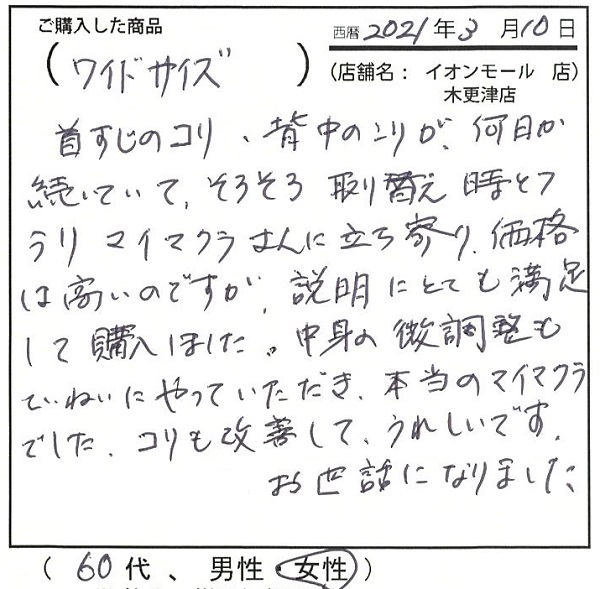 ご購入した商品
西暦 2021 年 3 月 10 日
( ワイドサイズ )
(店舗名： イオンモール 店)
木更津店
首すじのコリ、背中のこりが、何日か
続いていて、そろそろ 取り替え 時とフ
ラリ マイマクラさんに立ち寄り、価格
は高いのですが、説明にとても満足
して購入しました。中身の微調整も
ていねいにやっていただき、本当のマイマクラ
でした。コリも改善して、うれしいです。
お世話になりました、
( 60 代 、 男性 ・ 女性 )